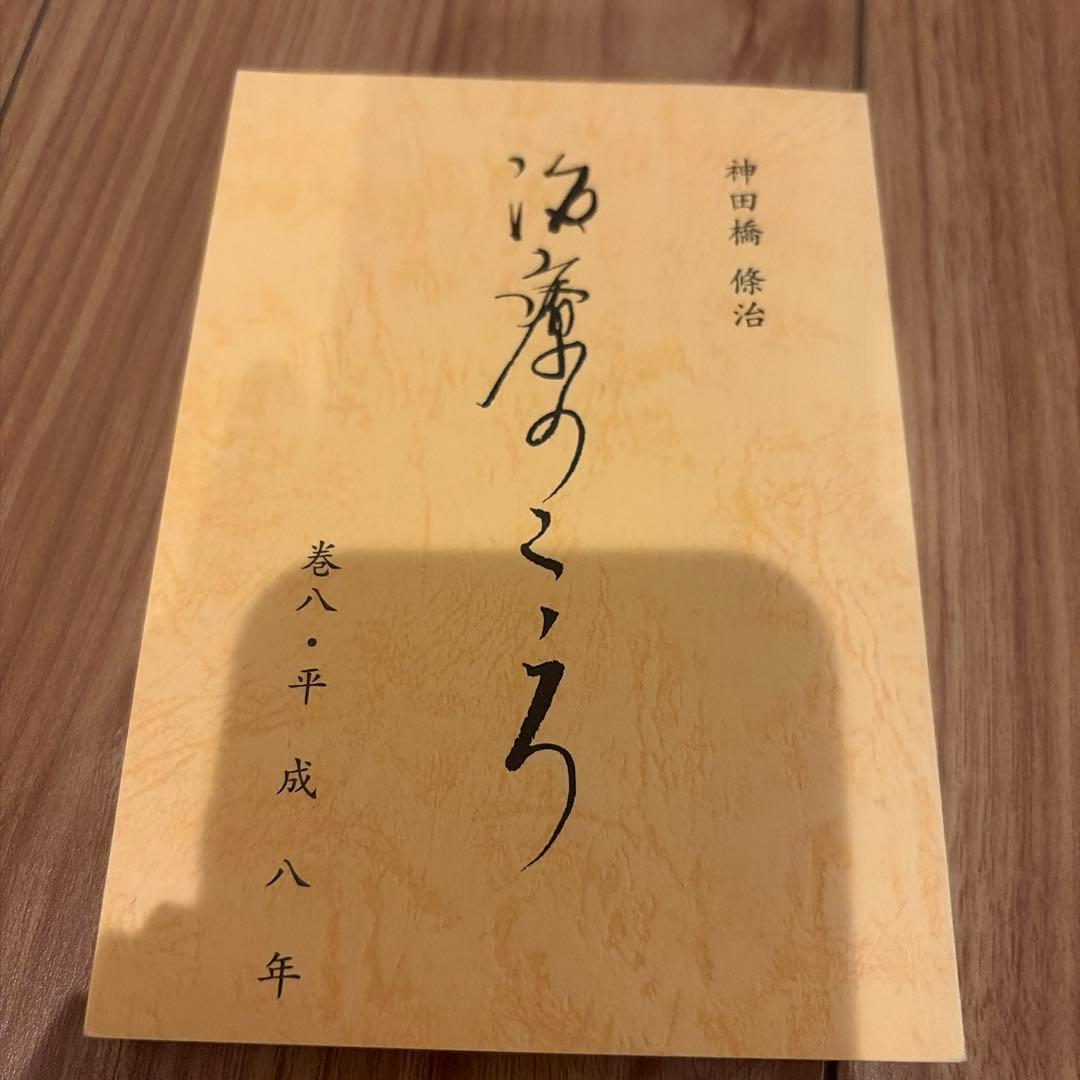 神田橋 條治
治療のこころ
巻八・平成八年